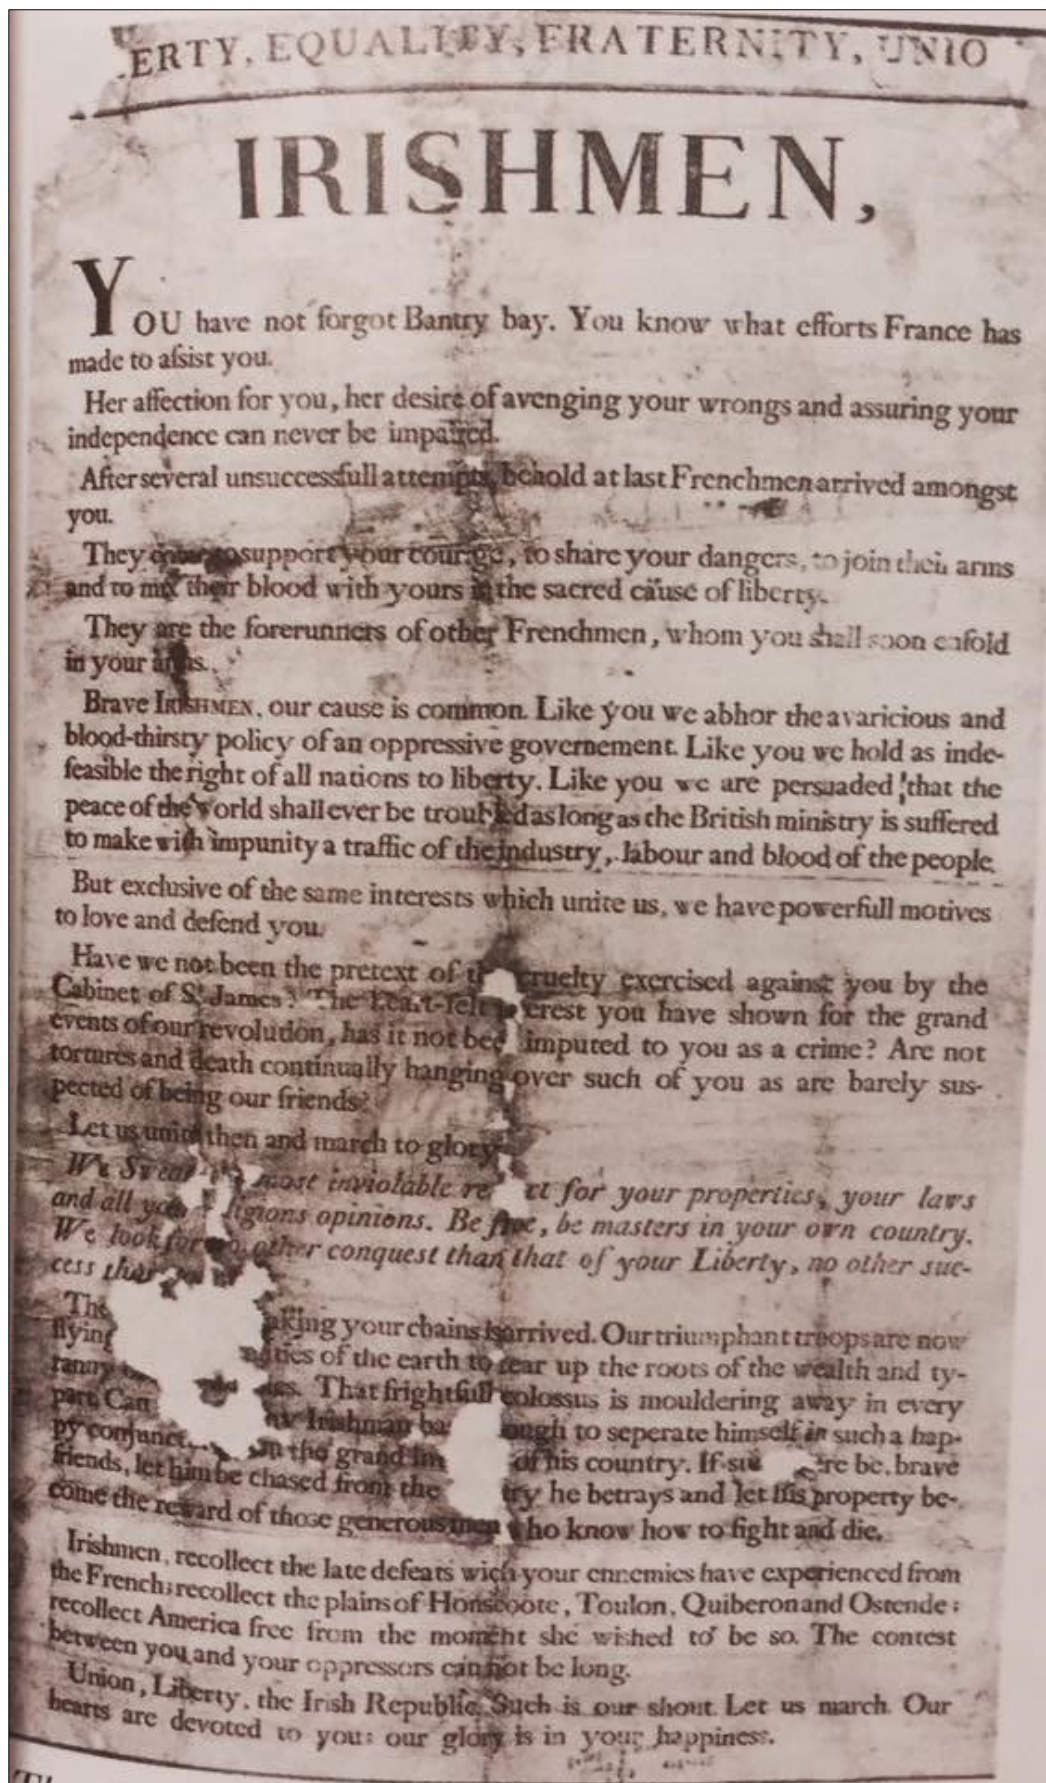 ERTY, EQUALITY, FRATERNITY, UNIO
IRISHMEN,
YOU have not forgot Bantry bay. You know what efforts France has
made to assist you.
Her affection for you, her desire of avenging your wrongs and assuring your
independence can never be impaired.
After several unsuccessfull attempts, behold at last Frenchmen arrived amongst
you.
They support your courage, to share your dangers, to join their arms
and to mix their blood with yours in the sacred cause of liberty.
They are the forerunners of other Frenchmen, whom you shall soon enfold
in your arms.
Brave IRISHMEN, our cause is common. Like you we abhor the avaricious and
blood-thirsty policy of an oppressive governement. Like you we hold as inde-
feasible the right of all nations to liberty. Like you we are persuaded that the
peace of the world shall ever be troubled as long as the British ministry is suffered
to make with impunity a traffic of the industry, labour and blood of the people.
But exclusive of the same interests which unite us, we have powerfull motives
to love and defend you.
Have we not been the pretext of cruelty exercised against you by the
Cabinet of St. James? The heart-felt erest you have shown for the grand
events of our revolution, has it not bee imputed to you as a crime? Are not
tortures and death continually hanging over such of you as are barely sus-
pected of being our friends?
Let us unite then and march to glory
We Swear most inviolable re ct for your properties, your laws
and all you ligions opinions. Be free, be masters in your own country.
We look for no other conquest than that of your Liberty, no other suc-
cess than
The aking your chains is arrived. Our triumphant troops are now
flying ties of the earth to tear up the roots of the wealth and ty-
ranny es. That frightfull colossus is mouldering away in every
part. Can Irishman ba ough to seperate himself in such a hap-
py conjunct in the grand of his country. If re be, brave
friends, let him be chased from the try he betrays and let his property be-
come the reward of those generous men who know how to fight and die.
Irishmen, recollect the late defeats wich your ennemies have experienced from
the French; recollect the plains of Honscoote, Toulon, Quiberon and Ostende;
recollect America free from the moment she wished to be so. The contest
between you and your oppressors cannot be long.
Union, Liberty, the Irish Republic. Such is our shout. Let us march. Our
hearts are devoted to you: our glory is in your happiness.